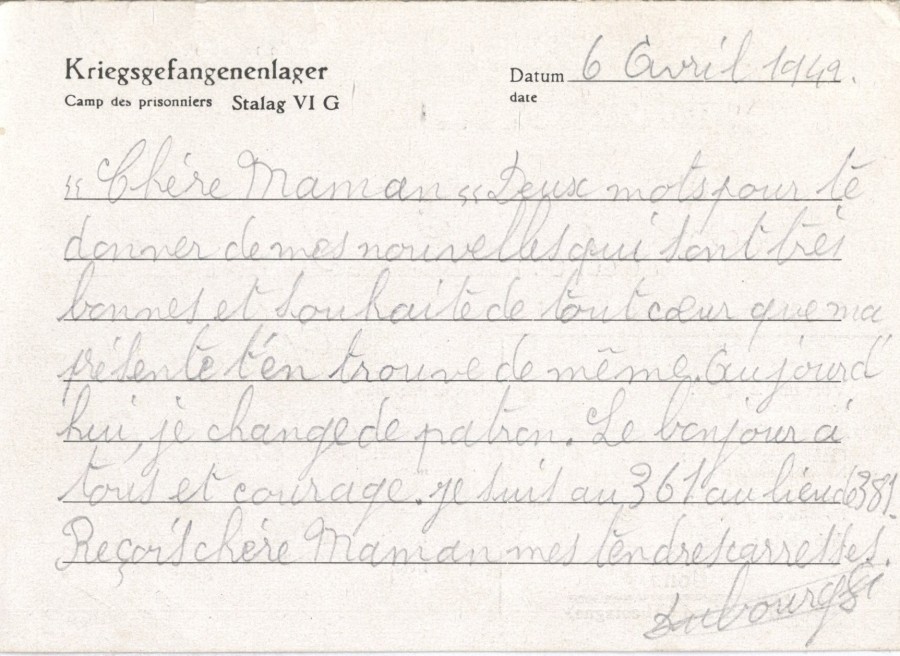 Kriegsgefangenenlager
Camp des prisonniers Stalag VI G
Datum 6 Avril 1942.
date
"Chère Maman" Deux mots pour te
donner de mes nouvelles qui sont très
bonnes et souhaite de tout cœur que ma
présente t'en trouve de même. Aujourd'
hui, je change de patron. Le bonjour à
tous et courage. je suis au 361 au lieu de 381.
Reçois chère Maman mes tendres carresses.